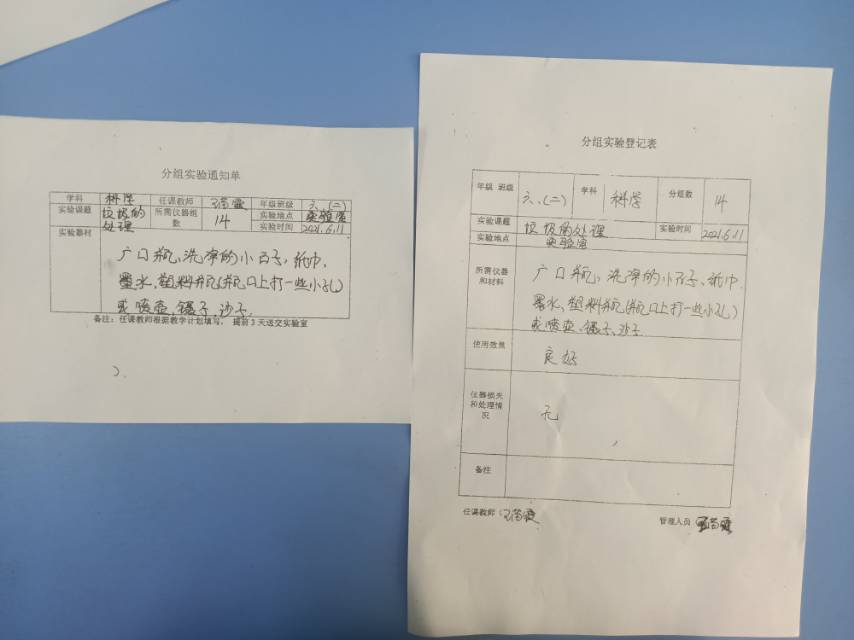 分组实验通知单
学科 科学 任课教师 年级班级 六.(二)
实验课题 垃圾的处理 所需仪器组数 14 实验地点 实验室
实验时间 2021.6.11
实验器材 广口瓶、洗净的小石子、纸巾、
墨水、塑料瓶(瓶口上打一些小孔)
或喷壶、镊子、沙子.
备注：任课教师根据教学计划填写，提前3天送交实验室
分组实验登记表
年级 班级 六.(二) 学科 科学 分组数 14
实验课题 垃圾的处理 实验时间 2021.6.11
实验地点 实验室
所需仪器和材料 广口瓶、洗净的小石子、纸巾、
墨水、塑料瓶(瓶口上打一些小孔)
或喷壶、镊子、沙子
使用效果 良好
仪器损失和处理情况 无
备注
任课教师
管理人员